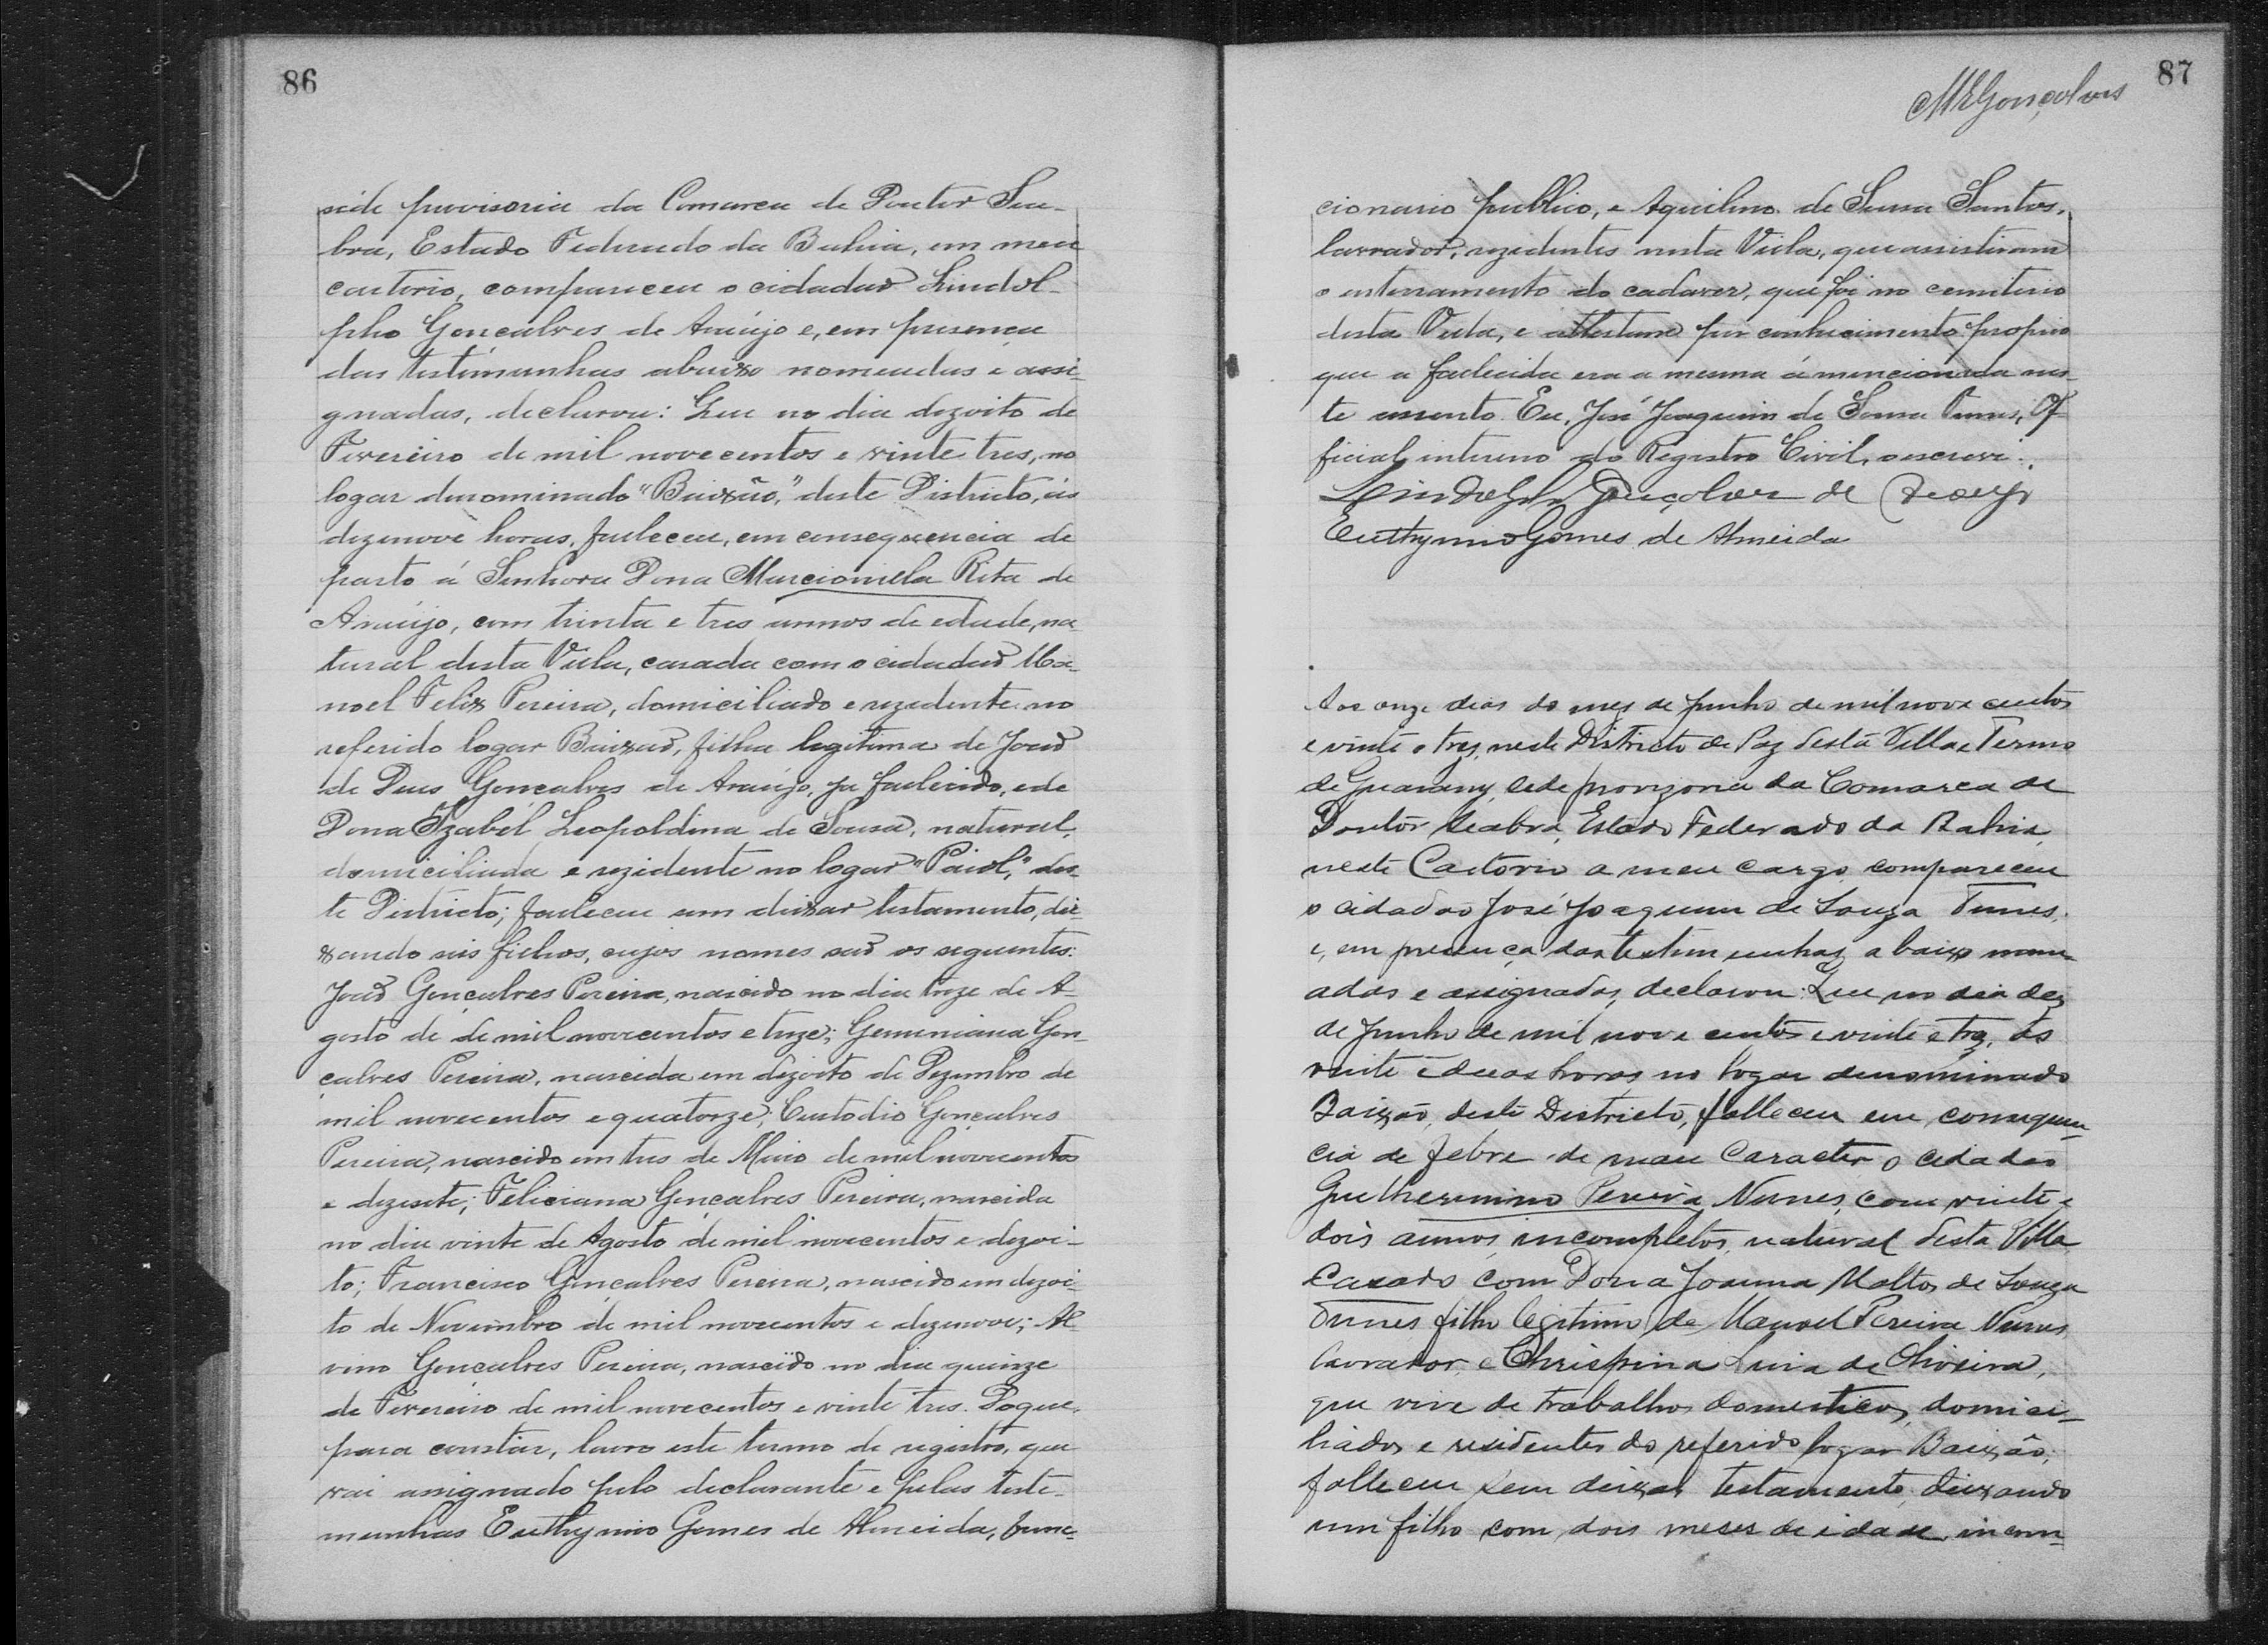 86
séde provisoria da Comarca de Doutor Sea-
bra, Estado Federado da Bahia, em meu
cartorio, compareceu o cidadão Lindol-
pho Gonçalves de Araújo e, em presença
das testimunhas abaixo nomeadas e assi-
gnadas, declarou: Que no dia dezoito de
Fevereiro de mil novecentos e vinte tres, no
logar denominado "Baixão," deste Districto, ás
dezenove horas, faleceu, em consequencia de
parto á Senhora Dona Marcionilla Rita de
Araújo, com trinta e tres annos de edade, na-
tural desta Villa, casada com o cidadão Ma-
noel Felix Pereira, domiciliado e rezidente no
referido logar Baixão, filha legitima de João
de Deus Gonçalves de Araújo, ja falecido, e de
Dona Izabél Leopoldina de Sousa, natural,
domiciliada e rezidente no logar "Paiol," des-
te Districto; faleceu sem deixar testamento, dei-
xando seis filhos, cujos nomes são os seguintes:
João Gonçalves Pereira, nascido no dia treze de A-
gosto de de mil novecentos e treze; Geminiana Gon-
çalves Pereira, nascida em dezoito de Dezembro de
mil novecentos e quatorze; Custodio Gonçalves
Pereira, nascido em tres de Maio de mil novecentos
e dezesete; Feliciana Gonçalves Pereira, nascida
no dia vinte de Agosto de mil novecentos e dezoi-
to; Francisco Gonçalves Pereira, nascido em dezoi-
to de Novembro de mil novecentos e dezenove; Al-
vino Gonçalves Pereira, nascido no dia quinze
de Fevereiro de mil novecentos e vinte tres. Do que,
para constar, lavro este termo de registro, que
vai assignado pelo declarante e pelas teste-
munhas Euthymio Gomes de Almeida, func-
87
MEGonçalves
cionario publico, e Aquilino de Sousa Santos,
lavrador, rezidentes nesta Villa, que assistiram
o enterramento do cadaver, que foi no cemiterio
desta Villa, e attestam por conhecimento proprio
que a falecida era a mesma á mencionada nes-
te assento. Eu, José Joaquim de Sousa Tunes, Of-
ficial interino do Registro Civil, o escrevi.
Lindolpho Gonçalves de Araujo
Euthymio Gomes de Almeida
Aos onze dias do mez de junho de mil nove centos
e vinte e trez, neste Districto de Paz desta Villa e Termo
de Guarany, séde provizoria da Comarca de
Doutôr Seabra, Estado Federado da Bahia,
neste Cartorio a meu cargo compareceu
o cidadão José Joaquim de Souza Tunes,
e, em presença das testimunhas abaixo nome-
adas e assignadas, declarou: Que no dia dez
de junho de mil nove centos e vinte e trez, ás
vinte e duas horas no logar denominado
Baixão, deste Districto, falleceu em consequen-
cia de febre de mau caracter o cidadão
Guilhermino Pereira Nunes, com vinte e
dois annos incompletos, natural desta Villa
Casado com Dona Joanna Mattos de Souza
Tunes filho legitimo de Manoel Pereira Nunes
lavrador, e Chrispina Luiza de Oliveira,
que vive de trabalhos domesticos, domici-
liados e residentes do referido logar Baixão;
falleceu sem deixar testamento, deixando
um filho com dois meses de idade incom-